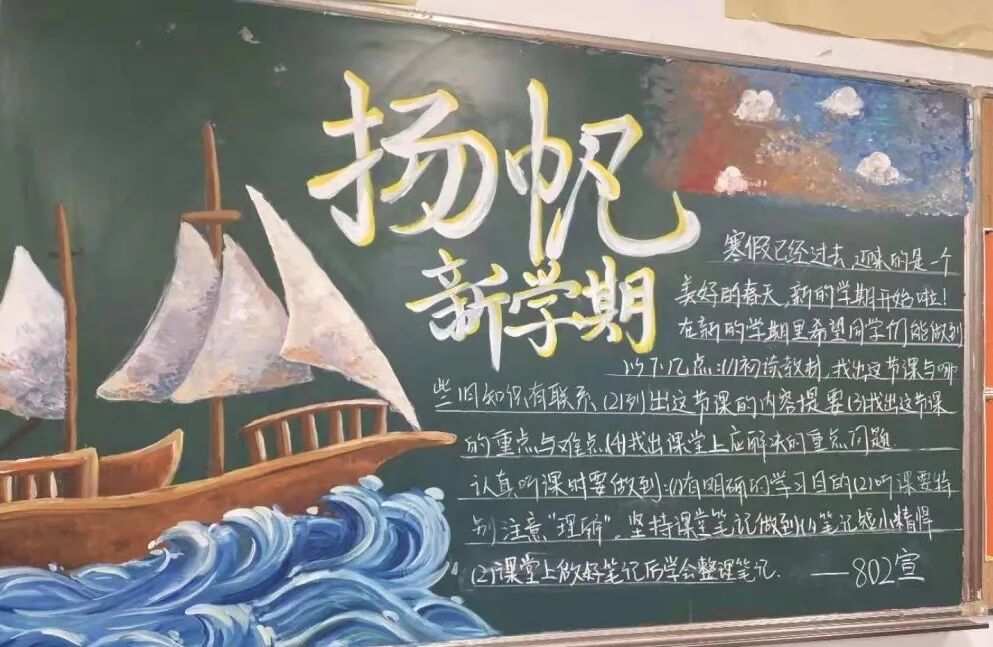 扬帆
新学期
寒假已经过去,迎来的是一个
美好的春天,新的学期开始啦!
在新的学期里希望同学们能做到
以下几点:(1)初读教材,找出这节课与哪
些旧知识有联系(2)列出这节课的内容提要(3)找出这节课
的重点与难点(4)找出课堂上应解决的重点问题
认真听课时要做到:(1)有明确的学习目的(2)听课要特
别注意“理解”,坚持课堂笔记做到(1)笔记短小精悍
(2)课堂上做好笔记后学会整理笔记.——802宣